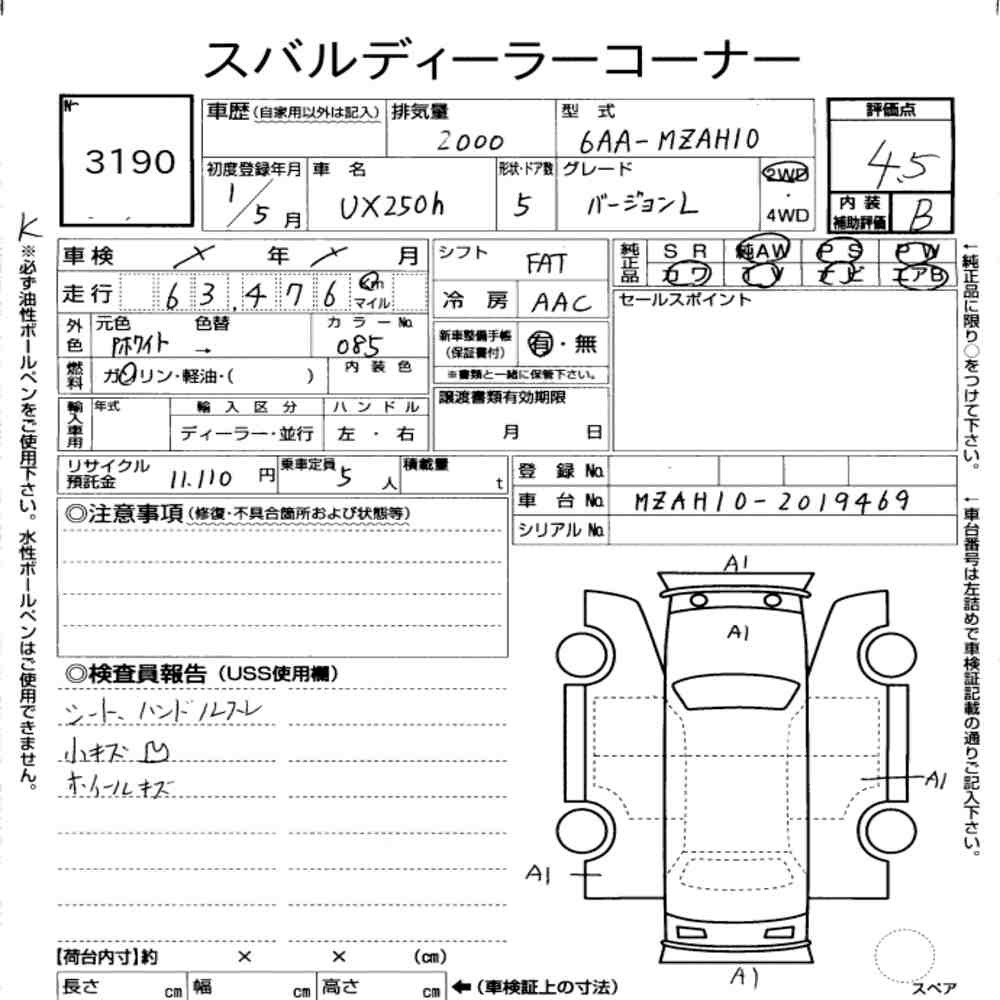 スバルディーラーコーナー
No
3190
車歴(自家用以外は記入)
排気量
2000
型 式
6AA-MZAH10
評価点
4.5
初度登録年月
1/5月
車 名
UX250h
形状・ドア数
5
グレード
バージョンL
2WD
・
4WD
内 装
補助評価
B
K
車検 × 年 × 月
走行 63,476 Km
マイル
シフト
FAT
冷 房
AAC
純正品
SR 純AW PS PW
カワ TV ナビ エアB
セールスポイント
外色
元色
色替
Pホワイト →
カラーNo.
085
新車整備手帳
(保証書付)
有・無
※書類と一緒に保管下さい。
燃料
ガソリン・軽油・( )
内装色
輸入車用
年式
輸入区分
ハンドル
ディーラー・並行
左・右
譲渡書類有効期限
月 日
リサイクル
預託金
11.110 円
乗車定員
5 人
積載量
t
登 録 No.
車 台 No.
MZAH10-2019469
シリアル No.
◎注意事項(修復・不具合箇所および状態等)
◎検査員報告(USS使用欄)
シート、ハンドルスレ
小キズ凹
ホイールキズ
A1
A1
A1
A1
A1
【荷台内寸】約 × × (cm)
長さ cm
幅 cm
高さ cm
←(車検証上の寸法)
スペア
※必ず油性ボールペンをご使用下さい。水性ボールペンはご使用できません。
←純正品に限り○をつけて下さい。
←車台番号は左詰めで車検証記載の通りご記入下さい。